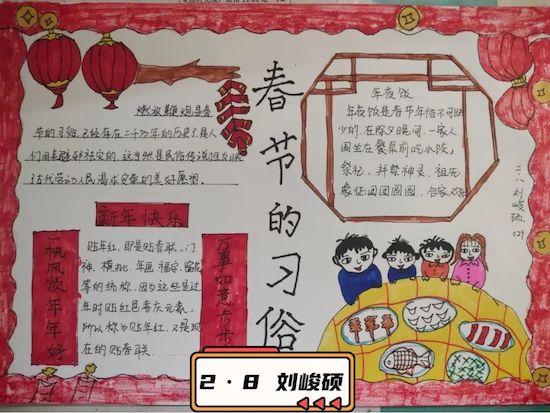 春节的习俗
燃放鞭炮是春
年的习俗,已经存在二千多年的历史了,是人
们用来驱邪祛灾的,这当然是民俗传说但反映
古代劳动人民渴求安泰的美好愿望。
年夜饭
年夜饭是春节年俗不可
少的,在除夕晚间,一家人
围坐在餐桌前吃水饺,
祭祀、拜祭神灵、祖先
象征团团圆圆,合家欢乐
二八 刘峻硕
新年快乐
一帆风顺年年好
万事如意步步
贴年红,即是贴春联、门
神、横批、年画、福字、窗花
等的统称,因为这些是过
年时贴红色喜庆元素,
所以称为贴年红,又是现
在的贴春联。
2·8 刘峻硕